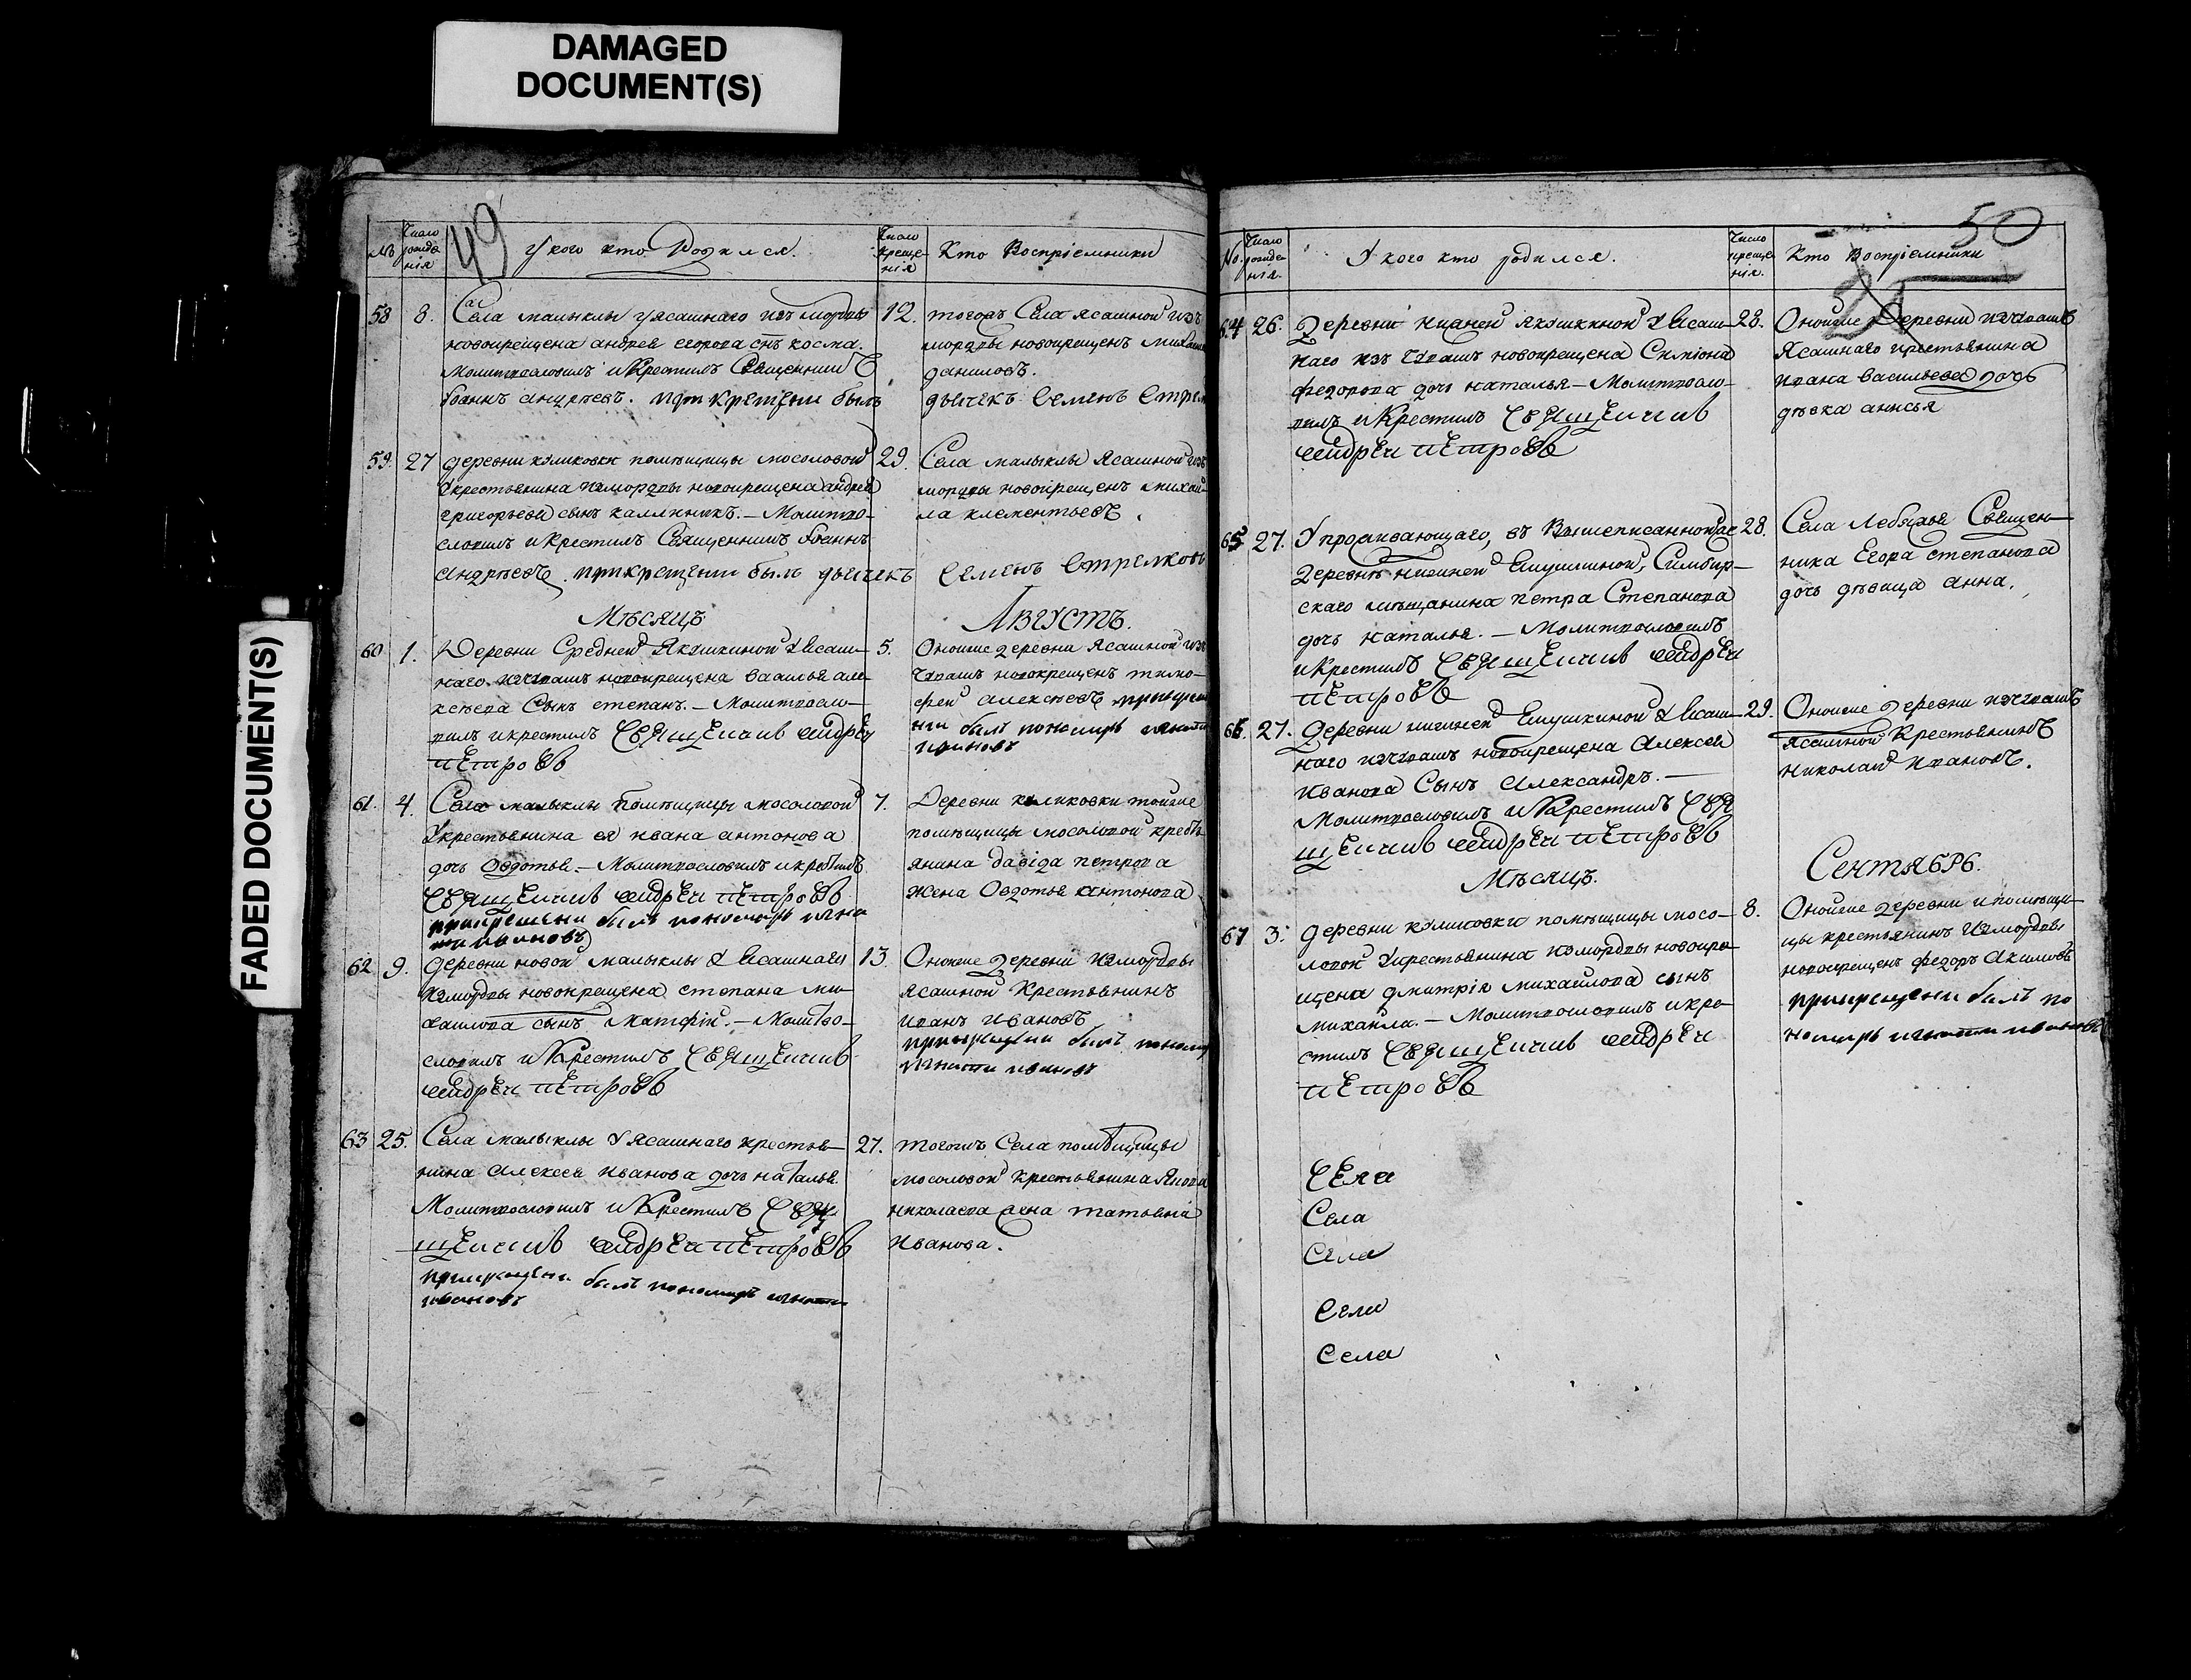 DAMAGED
DOCUMENT(S)
FADED DOCUMENT(S)
49
№
Число рожде-
нія
У кого кто Родился.
Число
креще-
нія
Кто Воспріемники
58 8. Села малыклы у ясашнаго изъ мордвы
новокрещена андрея егорова снъ косма.
Молитвословилъ и Крестилъ Священникъ
Іоаннъ андрѣевъ. при крещении былъ
12. тогожъ Села ясашной изъ
мордвы новокрещенъ
даниловъ.
дьячекъ Семенъ
59. 27 деревни куликовки помѣщицы мосоловой
Укрестьянина измордвы новокрещена андрея
григорьева сынъ каллиникъ. — Молитво-
словилъ и Крестилъ Священникъ Іоаннъ
андрѣевъ. прикрещении былъ дьячекъ
29. Села малыклы Ясашной изъ
мордвы новокрещенъ михай-
ла клементьевъ.
Семенъ Стрелковъ
Мѣсяцъ Августъ.
60 1. Деревни Средней Якушкиной У Ясаш-
наго изчувашъ новокрещена василья але-
ксѣева Сынъ степанъ. — Молитвосло-
вилъ и крестилъ Священникъ андрей
петровъ
5. Оноиже деревни Ясашной изъ
чувашъ новокрещенъ тимо-
фей алексѣевъ
нии былъ пономарь
ивановъ
61. 4. Села малыклы Помѣщицы мосоловой
Укрестьянина ея ивана антонова
дочь Овдотья. — Молитвословилъ и крестилъ
Священникъ андрей петровъ
прикрещении былъ пономарь игна
ти ивановъ
7. Деревни куликовки тоиже
помѣщицы мосоловой кресть-
янина давида петрова
жена Овдотья антонова
62 9. деревни новой малыклы У Ясашнаго
измордвы новокрещена степана ми-
хаилова сынъ Матфіи. — Молитво-
словилъ и Крестилъ Священникъ
андрей петровъ
13. Оноиже Деревни измордвы
ясашной Крестьянинъ
иванъ ивановъ
прикрещении былъ
игнати ивановъ
63 25. Села малыклы У ясашнаго крестья-
нина Алексея иванова дочь наталья
Молитвословилъ и Крестилъ Свя
щенникъ андрей петровъ
прикрещении былъ пономарь игнати
ивановъ
27. тогожъ Села помѣщицы
мосоловой Крестьянина
николаева жена татьяна
иванова.
50
25
No.
Число
рожде-
нія.
У кого кто родился.
Число
креще-
нія.
Кто Воспріемники
64 26. Деревни нижней Якушкиной У Ясаш-
наго изъ чувашъ новокрещена Симіона
федорова дочь наталья — Молитвосло-
вилъ и Крестилъ Священникъ
андрей петровъ
28. Оноиже Деревни изчувашъ
Ясашнаго крестьянина
ивана васильева дочь
дѣвка анисья
65 27. У проживающаго, въ Вышеписанной
Деревнѣ нижней Якушкиной, Симбир-
скаго мѣщанина петра Степанова
дочь наталья. — Молитвословилъ
и Крестилъ Священникъ андрей
петровъ
28. Села Лебяжья Священ-
ника Егора степанова
дочь дѣвица анна.
66. 27. Деревни нижней Якушкиной У Ясаш-
наго изчувашъ новокрещена Алексея
Иванова Сынъ Александръ. —
Молитвословилъ и Крестилъ Свя
щенникъ андрей петровъ
29. Оноиже деревни изчувашъ
ясашной Крестьянинъ
николай ивановъ.
Мѣсяцъ. Сентябрь.
67 3. деревни куликовки помѣщицы мосо-
ловой Укрестьянина измордвы новокре-
щена дмитрія михаилова сынъ
михаила. — Молитвословилъ и кре-
стилъ Священникъ андрей
петровъ
8. Оноиже деревни и помѣщи-
цы крестьянинъ измордвы
новокрещенъ федоръ Акимовъ
прикрещении былъ по
номарь игнати ивановъ
Села
Села
Села
Села
Села